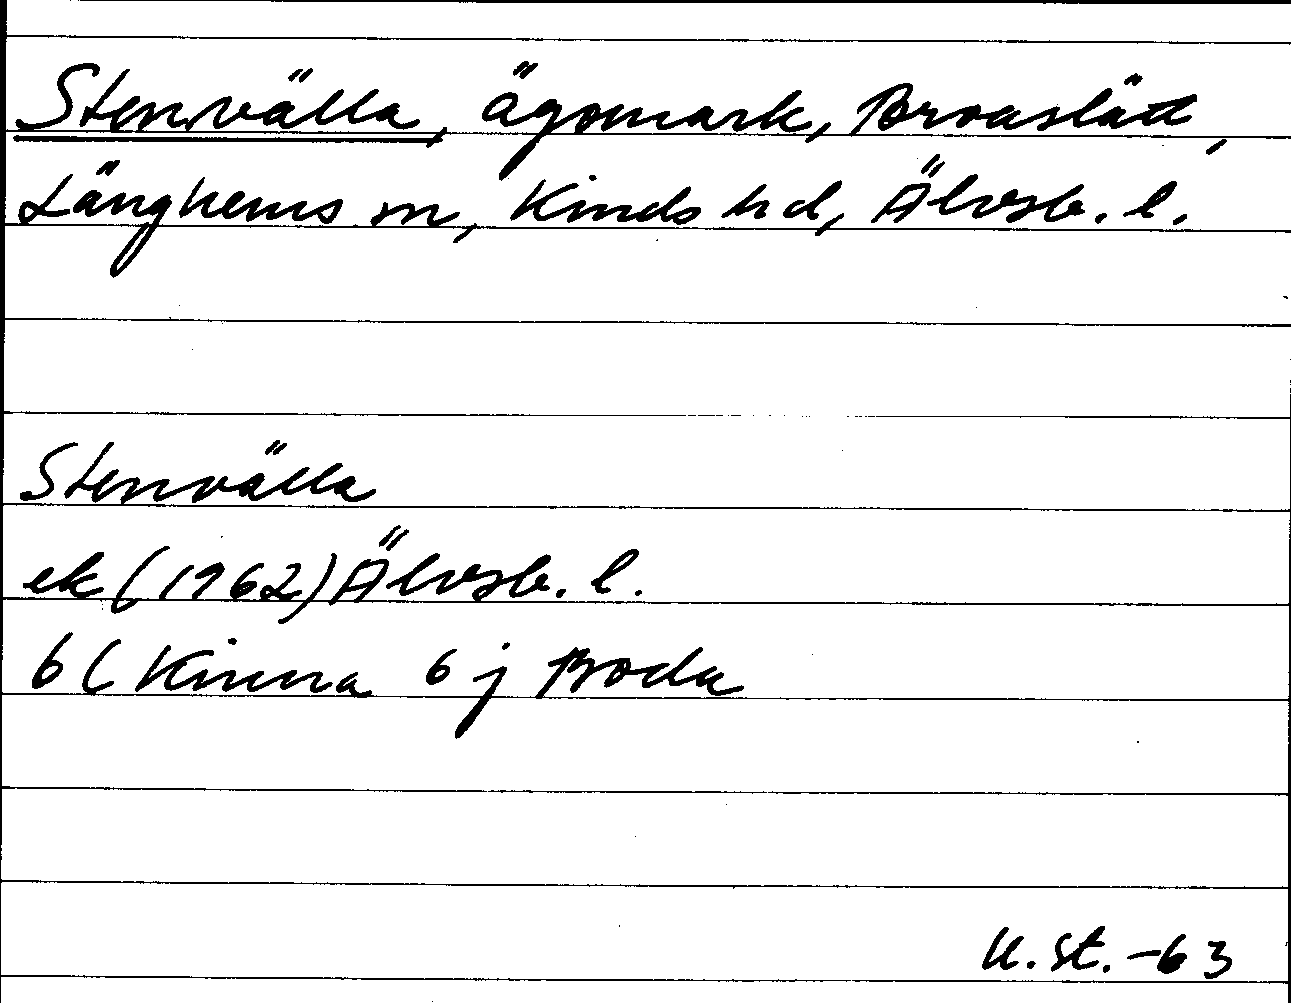 Stenvälla, ägomark, Broaslätt,
Länghems sn, Kinds hd, Älvsb. l.
Stenvälla
ek (1962) Älvsb. l.
6 C Kinna 6 j Boda
U.St.-63